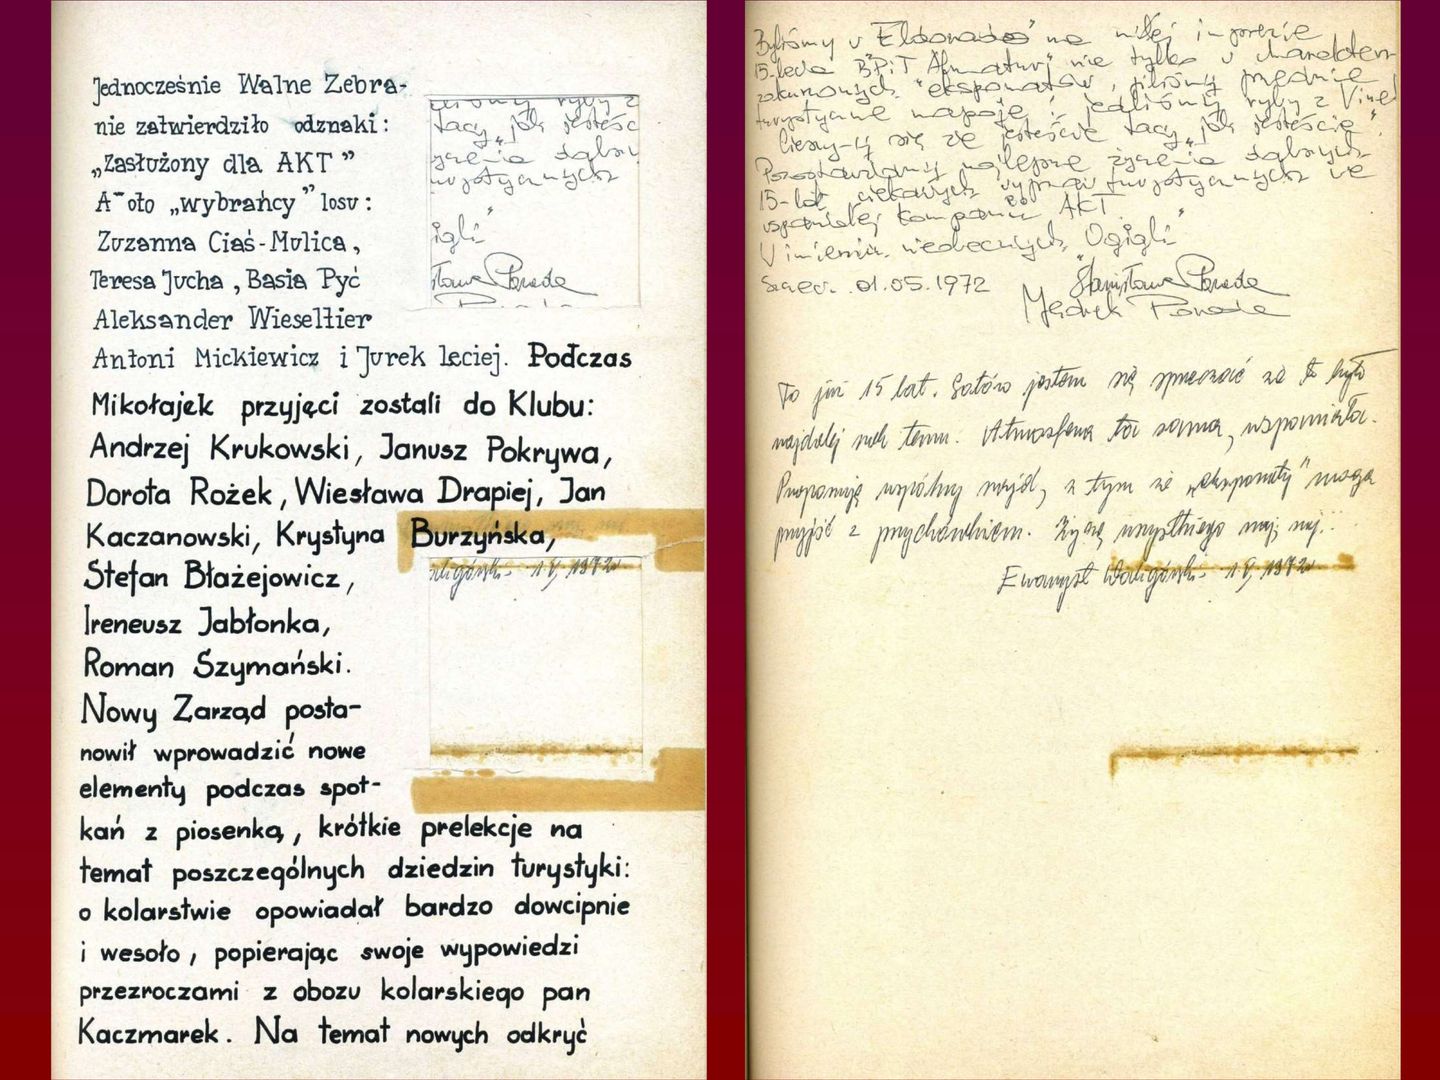 Jednocześnie Walne Zebra-
nie zatwierdziło odznaki:
„Zasłużony dla AKT”
A oto „wybrańcy” losu:
Zuzanna Ciaś-Mulica,
Teresa Jucha, Basia Pyć
Aleksander Wieseltier
Antoni Mickiewicz i Jurek Ieciej. Podczas
Mikołajek przyjęci zostali do Klubu:
Andrzej Krukowski, Janusz Pokrywa,
Dorota Rożek, Wiesława Drapiej, Jan
Kaczanowski, Krystyna Burzyńska,
Stefan Błażejowicz,
Ireneusz Jabłonka,
Roman Szymański.
Nowy Zarząd posta-
nowił wprowadzić nowe
elementy podczas spot-
kań z piosenką, krótkie prelekcje na
temat poszczególnych dziedzin turystyki:
o kolarstwie opowiadał bardzo dowcipnie
i wesoło, popierając swoje wypowiedzi
przezroczami z obozu kolarskiego pan
Kaczmarek. Na temat nowych odkryć
ryby z
tacy „jak jesteśc
życzenia dalszy
turystycznych
igli”
Porada
1 V 1972
Byliśmy w „Eldorado” na miłej imprezie
15-lecia BPiT Almatur, nie tylko w charakterze
zakurzonych „eksponatów”, piliśmy przednie
turystyczne napoje i jedliśmy ryby z
Cieszy-my się że jesteście tacy „jak jesteście”.
Pozostawiamy najlepsze życzenia dalszych
15-lat ciekawych wypraw turystycznych we
wspaniałej kompanii AKT
W imieniu nieobecnych „Ogigli”
01.05.1972 Stanisława Porada
Porada
To już 15 lat. Gotów jestem się sprzeczać że to było
najdalej rok temu. Atmosfera ta sama, wspaniała.
Proponuję wspólny rajd, z tym że „eksponaty” mogą
przyjść z przychówkiem. Życzę wszystkiego naj, naj...
Ewaryst Waligórski 1 V 1972